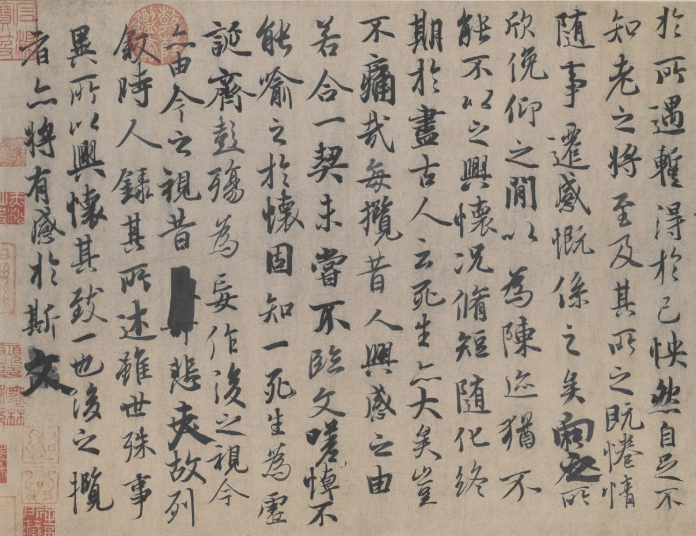 於所遇蹔得於己怏然自足不
知老之將至及其所之既惓情
隨事遷感慨係之矣向之所
欣俛仰之閒以為陳迹猶不
能不以之興懷況脩短隨化終
期於盡古人云死生亦大矣豈
不痛哉每攬昔人興感之由
若合一契未嘗不臨文嗟悼不
能喻之於懷固知一死生為虛
誕齊彭殤為妄作後之視今
亦由今之視昔悲夫故列
敘時人錄其所述雖世殊事
異所以興懷其致一也後之攬
者亦將有感於斯文